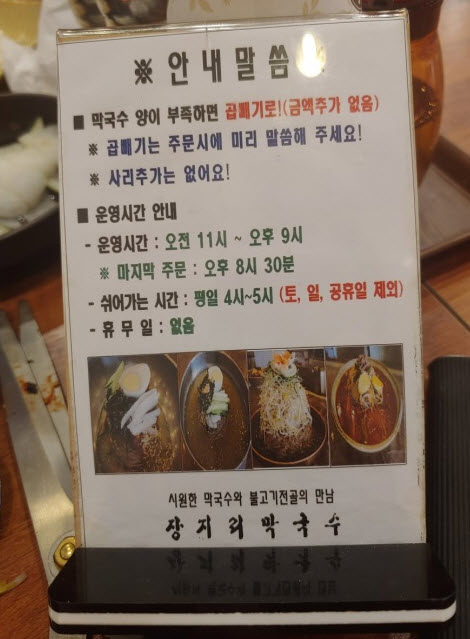 ※ 안내말씀 ※
■ 막국수 양이 부족하면 곱빼기로!(금액추가 없음)
※ 곱빼기는 주문시에 미리 말씀해 주세요!
※ 사리추가는 없어요!
■ 운영시간 안내
- 운영시간 : 오전 11시 ~ 오후 9시
※ 마지막 주문 : 오후 8시 30분
- 쉬어가는 시간 : 평일 4시~5시 (토, 일, 공휴일 제외)
- 휴 무 일 : 없음
시원한 막국수와 불고기전골의 만남
장지리막국수